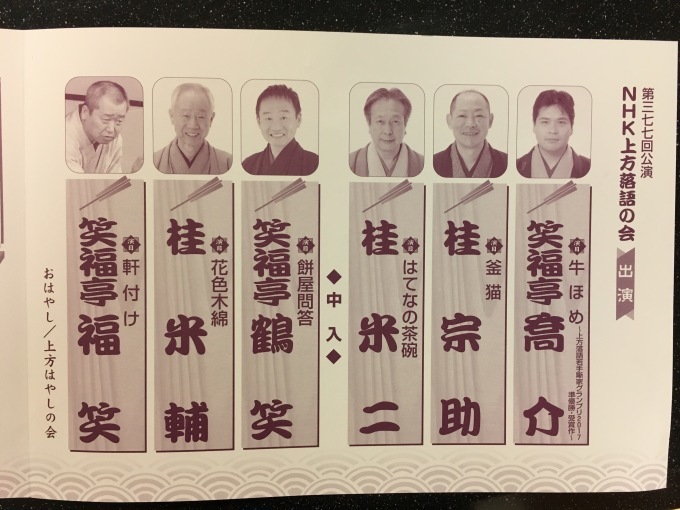 第三七七回公演
NHK上方落語の会
出演
演目 牛ほめ
〜上方落語若手噺家グランプリ2017
準優勝・受賞作〜
笑福亭喬介
演目 釜猫
桂宗助
演目 はてなの茶碗
桂米二
◆中入◆
演目 餅屋問答
笑福亭鶴笑
演目 花色木綿
桂米輔
演目 軒付け
笑福亭福笑
おはやし／上方はやしの会